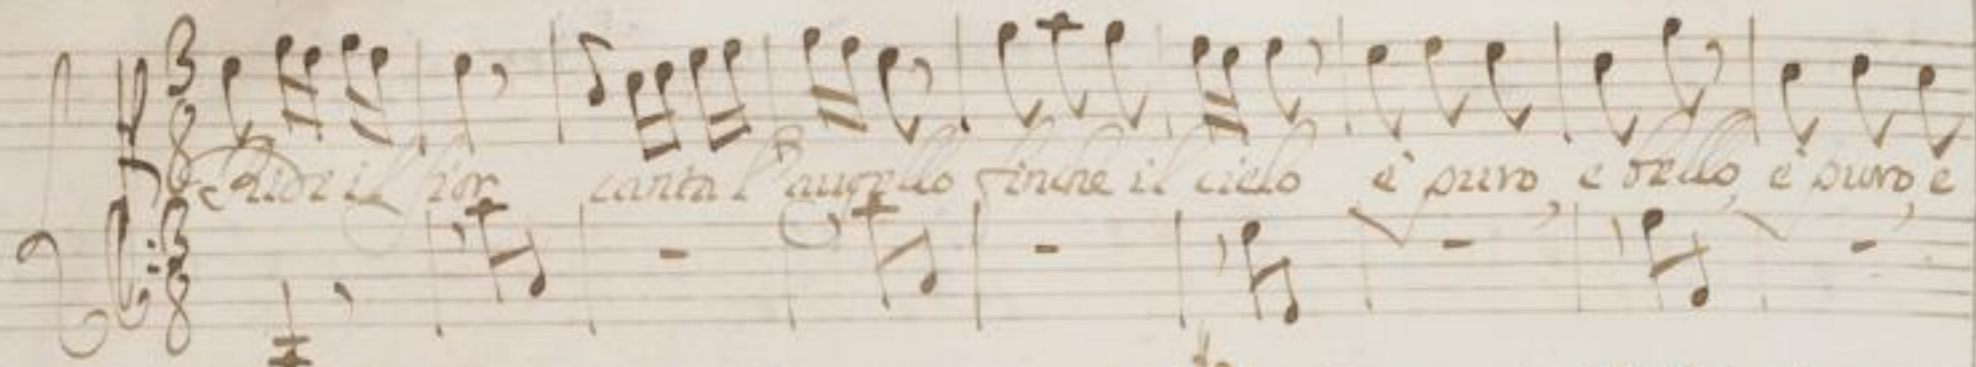 Ride il fior canta l'augello finche il cielo è puro, e bello, è puro, e